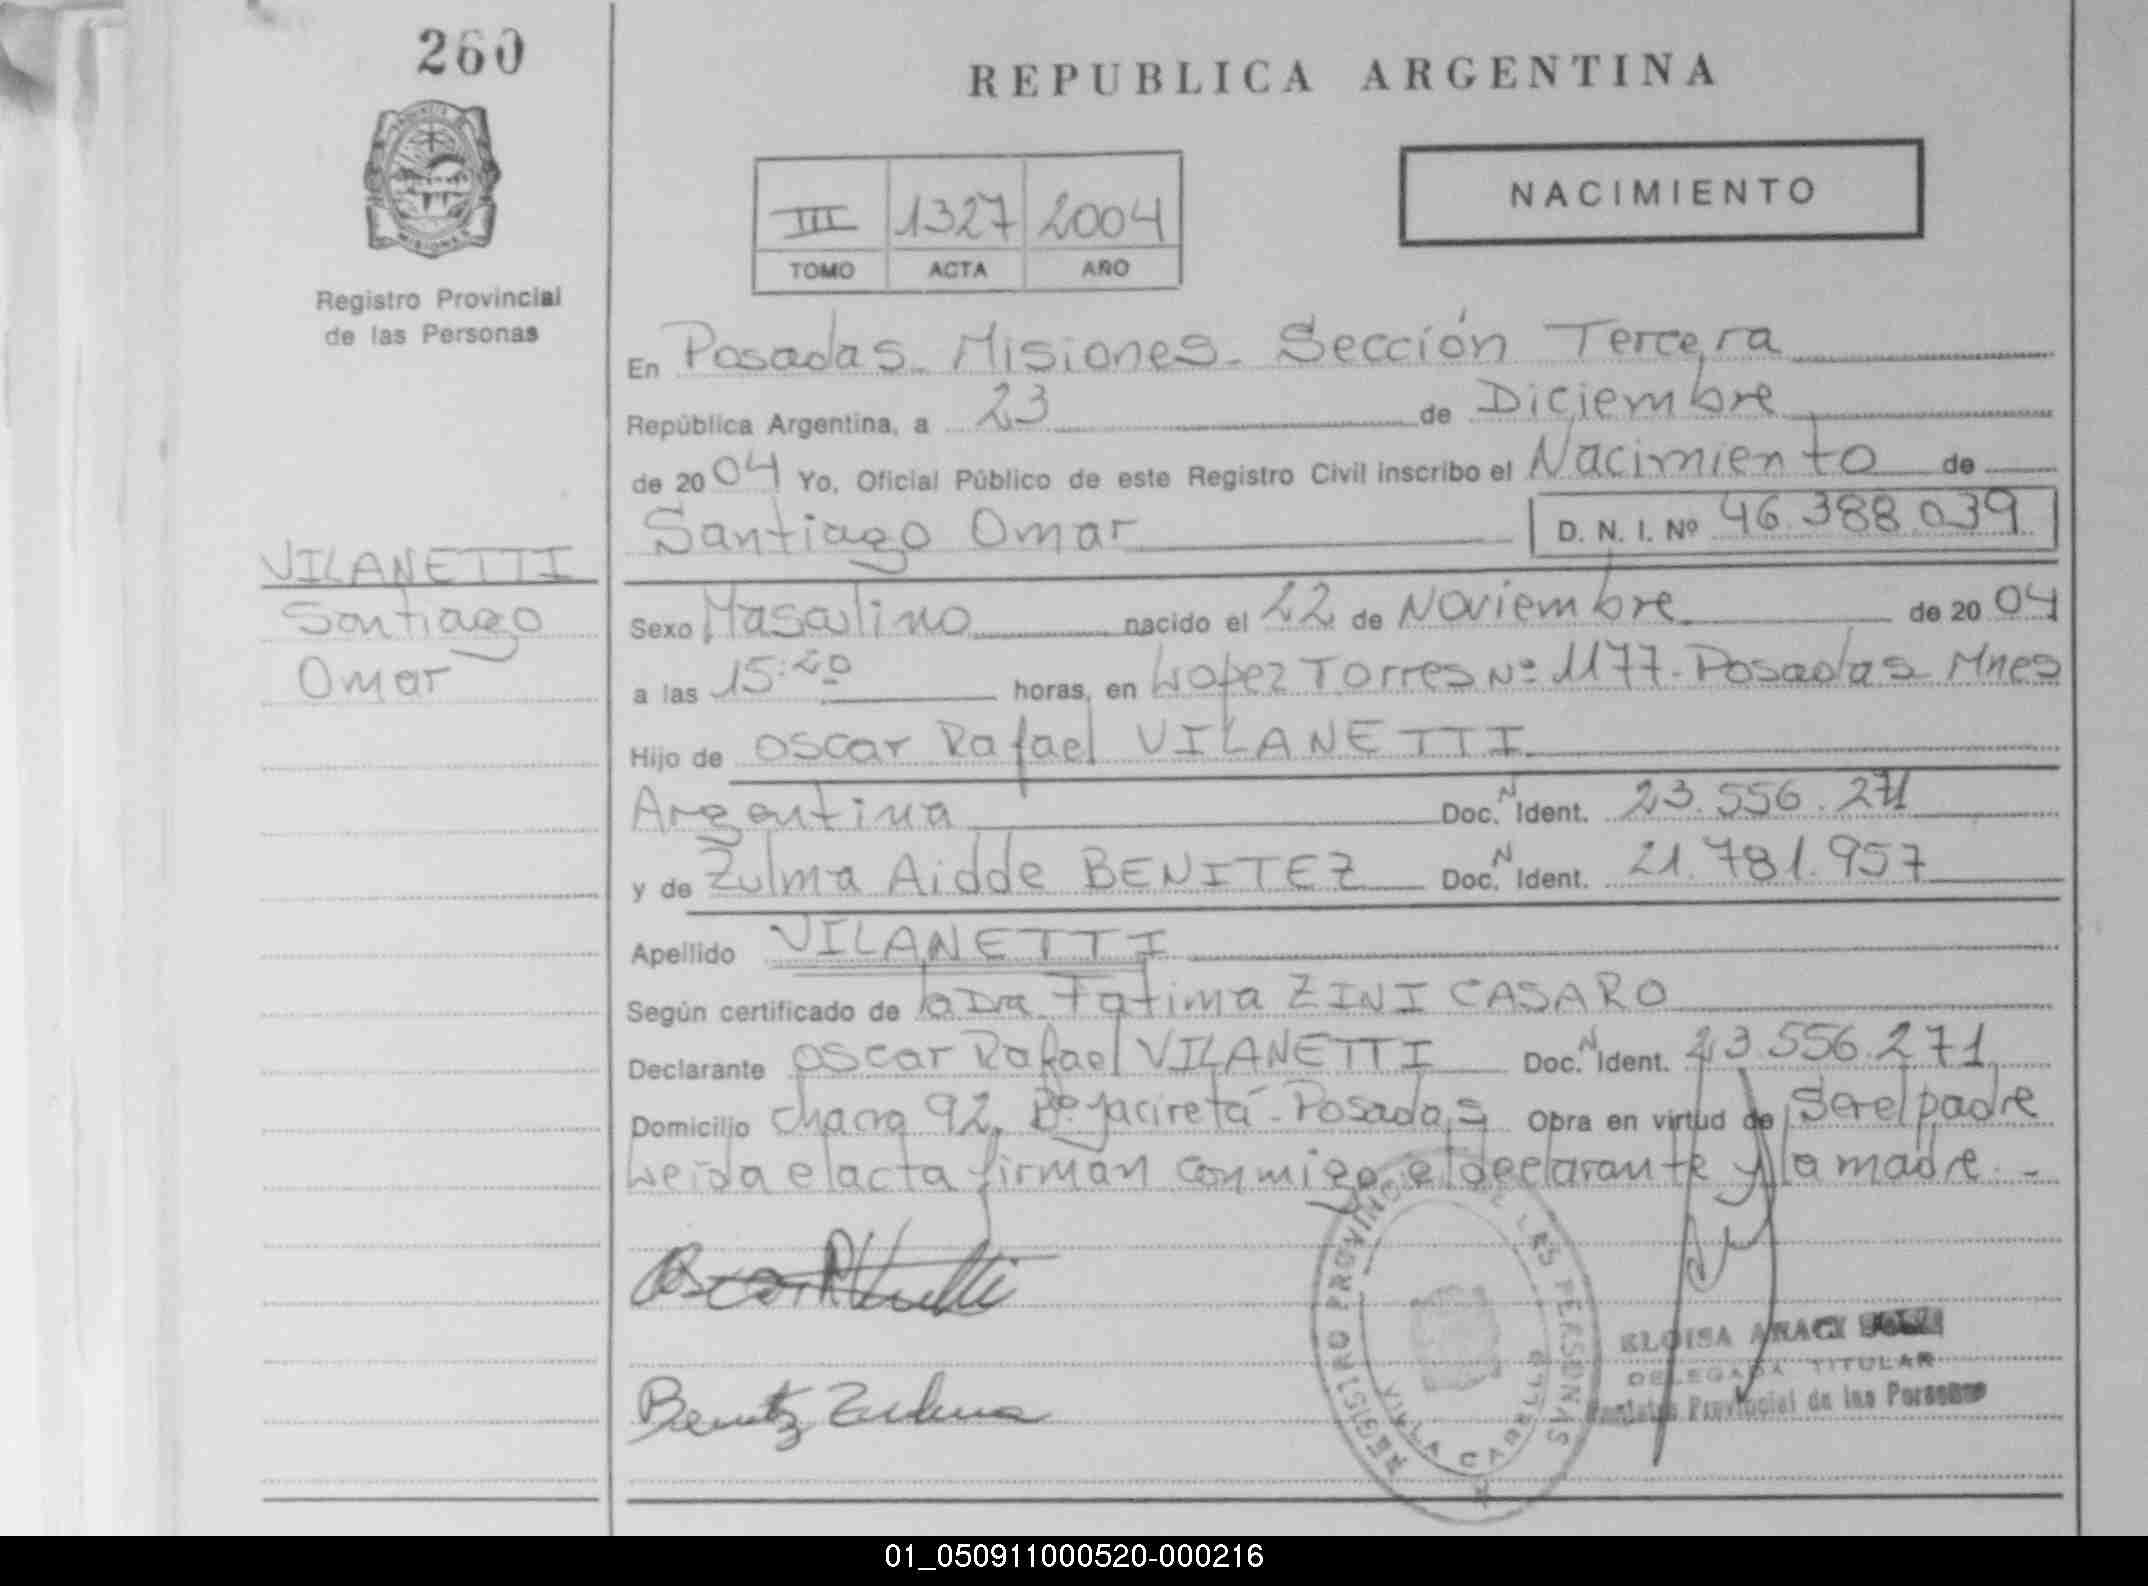 260
REPUBLICA ARGENTINA
NACIMIENTO
III 1327 2004
TOMO ACTA AÑO
Registro Provincial
de las Personas
En Posadas - Misiones - Sección Tercera
República Argentina, a 23 de Diciembre
de 2004 Yo, Oficial Público de este Registro Civil inscribo el Nacimiento de
Santiago Omar D. N. I. Nº 46.388.039
VILANETTI
Santiago
Omar
Sexo Masculino nacido el 22 de Noviembre de 2004
a las 15:20 horas, en Lopez Torres Nº 1177 - Posadas Mnes
Hijo de Oscar Rafael VILANETTI
Argentina Doc. N Ident. 23.556.271
y de Zulma Aidde BENITEZ Doc. N Ident. 21.781.957
Apellido VILANETTI
Según certificado de la Dra Fatima ZINI CASARO
Declarante Oscar Rafael VILANETTI Doc. N Ident. 23.556.271
Domicilio chacra 92, Bº Yacireta - Posadas Obra en virtud de ser el padre
Leida el acta firman conmigo el declarante y la madre. -
Benitez Zulma
REGISTRO PROVINCIAL DE LAS PERSONAS
VILLA CABELLO
ELOISA
DELEGADA TITULAR
Provincial de las Personas
01_050911000520-000216